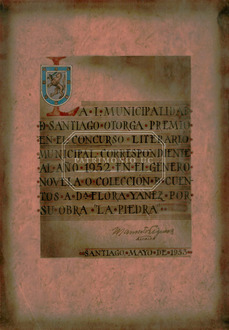 LA I. MUNICIPALIDAD
D SANTIAGO OTORGA PREMIO
EN EL CONCURSO LITERARIO
MUNICIPAL CORRESPONDIENTE
AL AÑO 1952 EN EL GENERO
NOVELA O COLECCION D CUEN
TOS A Dª FLORA YAÑEZ POR
SU OBRA "LA PIEDRA"
ALCALDE
SANTIAGO MAYO DE 1953